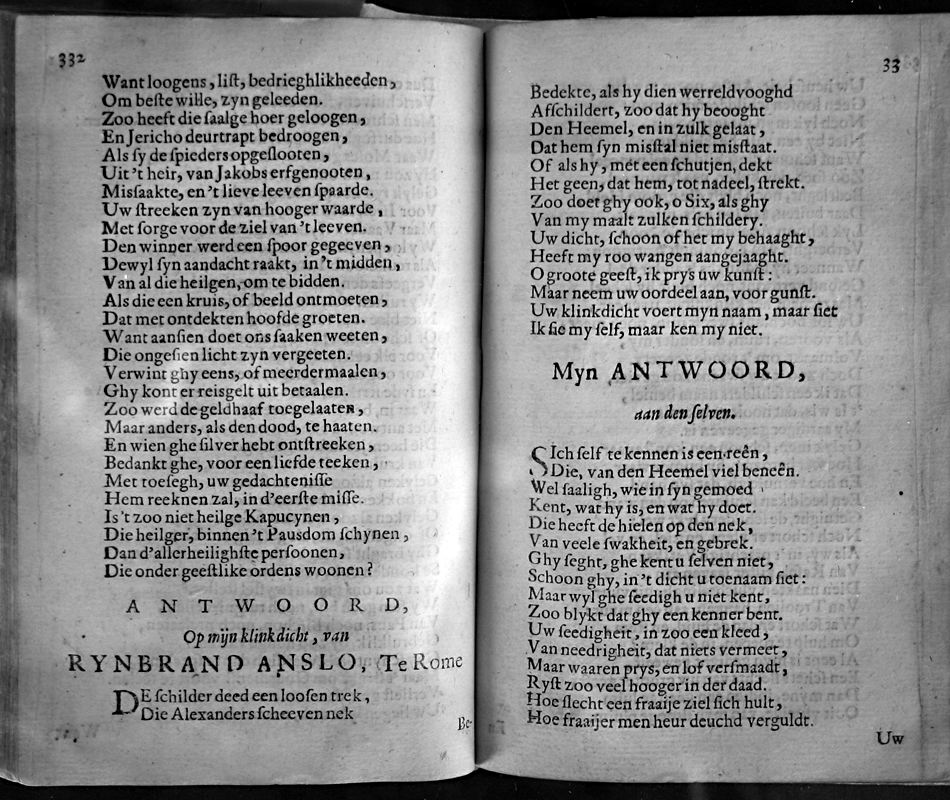 332
Want loogens, liſt, bedrieghlikheeden,
Om beſte wille, zyn geleeden.
Zoo heeft die ſaalge hoer geloogen,
En Jericho deurtrapt bedroogen,
Als ſy de ſpieders opgeſlooten,
Uit 't heir, van Jakobs erfgenooten,
Miſſaakte, en 't lieve leeven ſpaarde.
Uw ſtreeken zyn van hooger waarde,
Met ſorge voor de ziel van 't leeven.
Den winner werd een ſpoor gegeeven,
Dewyl ſyn aandacht raakt, in 't midden,
Van al die heilgen, om te bidden.
Als die een kruis, of beeld ontmoeten,
Dat met ontdekten hoofde groeten.
Want aanſien doet ons ſaaken weeten,
Die ongeſien licht zyn vergeeten.
Verwint ghy eens, of meerdermaalen,
Ghy kont er reisgelt uit betaalen.
Zoo werd de geldhaaf toegelaaten,
Maar anders, als den dood, te haaten.
En wien ghe ſilver hebt ontſtreeken,
Bedankt ghe, voor een liefde teeken,
Met toeſegh, uw gedachteniſſe
Hem reeknen zal, in d'eerſte miſſe.
Is 't zoo niet heilge Kapucynen,
Die heilger, binnen 't Pausdom ſchynen,
Dan d'allerheilighſte perſoonen,
Die onder geeſtlike ordens woonen?
ANTWOORD,
Op mijn klinkdicht, van
RYNBRAND ANSLO, Te Rome
DE ſchilder deed een looſen trek,
Die Alexanders ſcheeven nek
Be-
33
Bedekte, als hy dien werreldvooghd
Afſchildert, zoo dat hy beooght
Den Heemel, en in zulk gelaat,
Dat hem ſyn misſtal niet misſtaat.
Of als hy, met een ſchutjen, dekt
Het geen, dat hem, tot nadeel, ſtrekt.
Zoo doet ghy ook, o Six, als ghy
Van my maalt zulken ſchildery.
Uw dicht, ſchoon of het my behaaght,
Heeft my roo wangen aangejaaght.
O groote geeſt, ik prys uw kunſt:
Maar neem uw oordeel aan, voor gunſt.
Uw klinkdicht voert myn naam, maar ſiet
Ik ſie my ſelf, maar ken my niet.
Myn ANTWOORD,
aan den ſelven.
SIch ſelf te kennen is een reên,
Die, van den Heemel viel beneên.
Wel ſaaligh, wie in ſyn gemoed
Kent, wat hy is, en wat hy doet.
Die heeft de hielen op den nek,
Van veele ſwakheit, en gebrek.
Ghy ſeght, ghe kent u ſelven niet,
Schoon ghy, in 't dicht u toenaam ſiet:
Maar wyl ghe ſeedigh u niet kent,
Zoo blykt dat ghy een kenner bent.
Uw ſeedigheit, in zoo een kleed,
Van needrigheit, dat niets vermeet,
Maar waaren prys, en lof verſmaadt,
Ryſt zoo veel hooger in der daad.
Hoe ſlecht een fraaije ziel ſich hult,
Hoe fraaijer men heur deuchd verguldt.
Uw